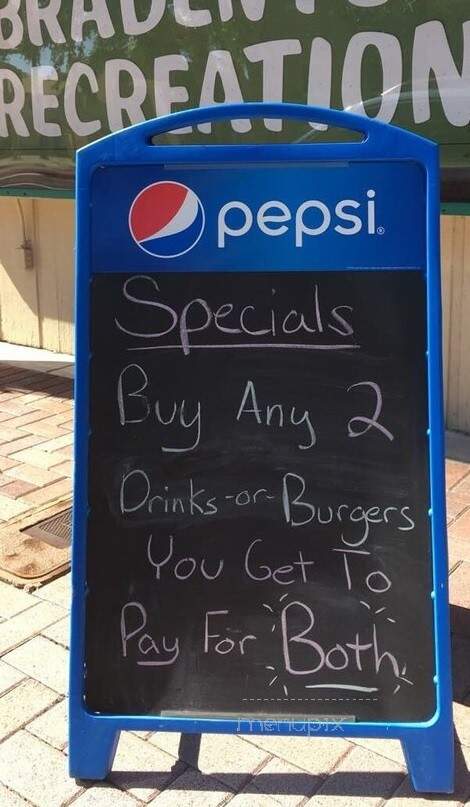 BRADENTO
RECREATION
pepsi®
Specials
Buy Any 2
Drinks-or-Burgers
You Get To
Pay For Both
menupix